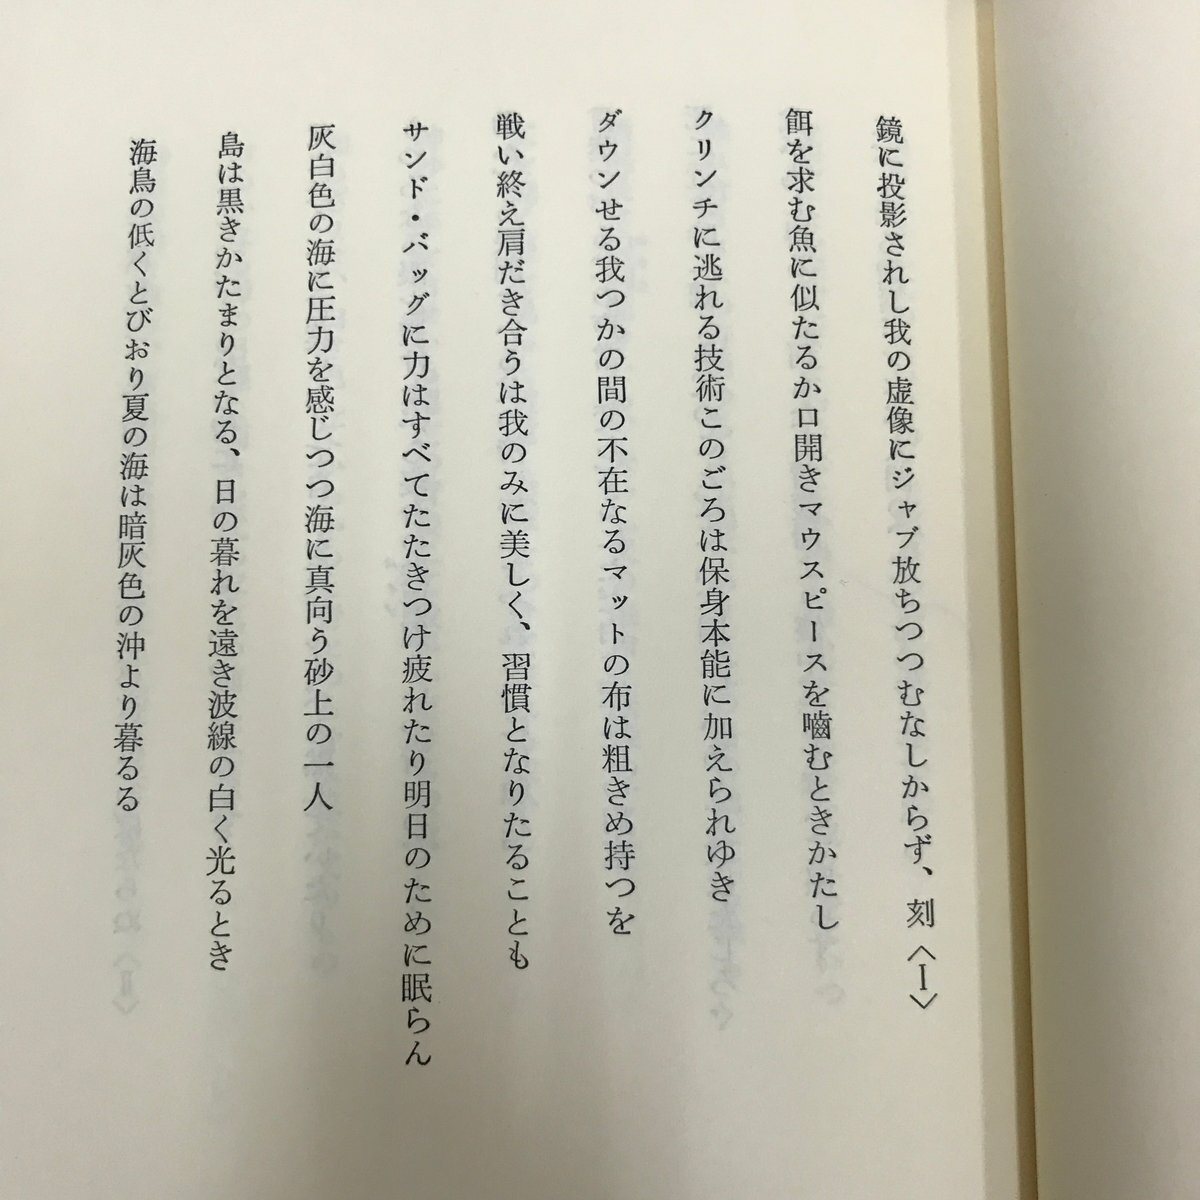 鏡に投影されし我の虚像にジャブ放ちつつむなしからず、刻〈Ⅰ〉
餌を求む魚に似たるか口開きマウスピースを嚙むときかたし
クリンチに逃れる技術このごろは保身本能に加えられゆき
ダウンせる我つかの間の不在なるマットの布は粗きめ持つを
戦い終え肩だき合うは我のみに美しく、習慣となりたることも
サンド・バッグに力はすべてたたきつけ疲れたり明日のために眠らん
灰白色の海に圧力を感じつつ海に真向う砂上の一人
島は黒きかたまりとなる、日の暮れを遠き波線の白く光るとき
海鳥の低くとびおり夏の海は暗灰色の沖より暮るる